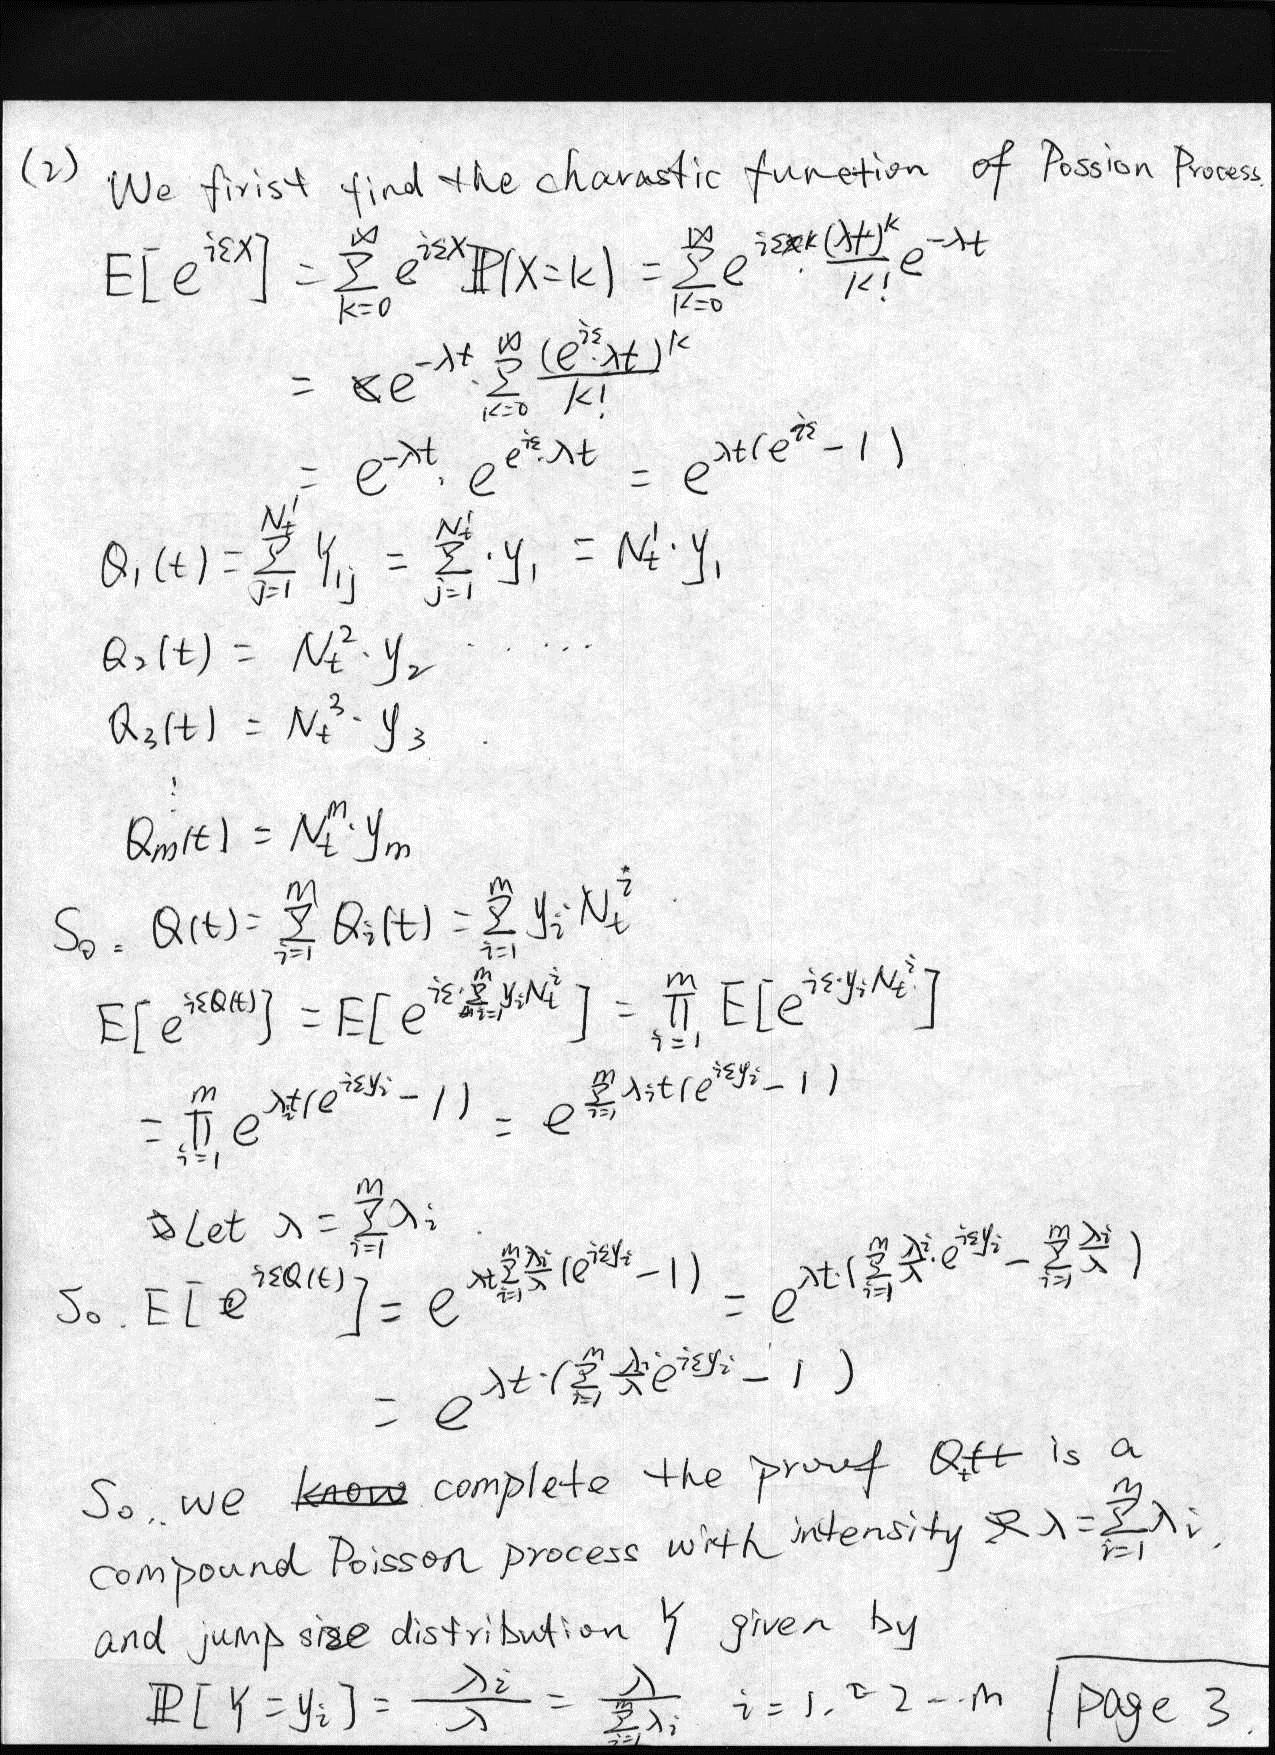 (2) We firist find the charastic function of Possion Process.
E[e^{iεX}] = ∑_{k=0}^{∞} e^{iεX} ℙ(X=k) = ∑_{k=0}^{∞} e^{iεk} · (λt)^k/k! e^{-λt}
= e^{-λt} · ∑_{k=0}^{∞} (e^{iε}·λt)^k / k!
= e^{-λt} · e^{e^{iε}·λt} = e^{λt(e^{iε}-1)}
Q₁(t) = ∑_{j=1}^{N_t^1} Y_{1j} = ∑_{j=1}^{N_t^1} · y₁ = N_t^1 · y₁
Q₂(t) = N_t^2 · y₂ · · · · ·
Q₃(t) = N_t^3 · y₃
⋮
Q_m(t) = N_t^m · y_m
So. Q(t) = ∑_{i=1}^{m} Q_i(t) = ∑_{i=1}^{m} y_i · N_t^i
E[e^{iεQ(t)}] = E[e^{iε·∑_{i=1}^{m} y_i N_t^i}] = ∏_{i=1}^{m} E[e^{iε·y_i N_t^i}]
= ∏_{i=1}^{m} e^{λ_i t(e^{iεy_i}-1)} = e^{∑_{i=1}^{m} λ_i t(e^{iεy_i}-1)}
Let λ = ∑_{i=1}^{m} λ_i
So. E[e^{iεQ(t)}] = e^{λt ∑_{i=1}^{m} λ_i/λ (e^{iεy_i}-1)} = e^{λt·(∑_{i=1}^{m} λ_i/λ · e^{iεy_i} - ∑_{i=1}^{m} λ_i/λ)}
= e^{λt·(∑_{i=1}^{m} λ_i/λ e^{iεy_i} - 1)}
So.. we know complete the proof Q_t is a
compound Poisson process with intensity λ = ∑_{i=1}^{m} λ_i.
and jump size distribution Y given by
ℙ[Y=y_i] = λ_i/λ = λ/∑_{i=1}^{m} λ_i i = 1. 2 -- m
page 3.